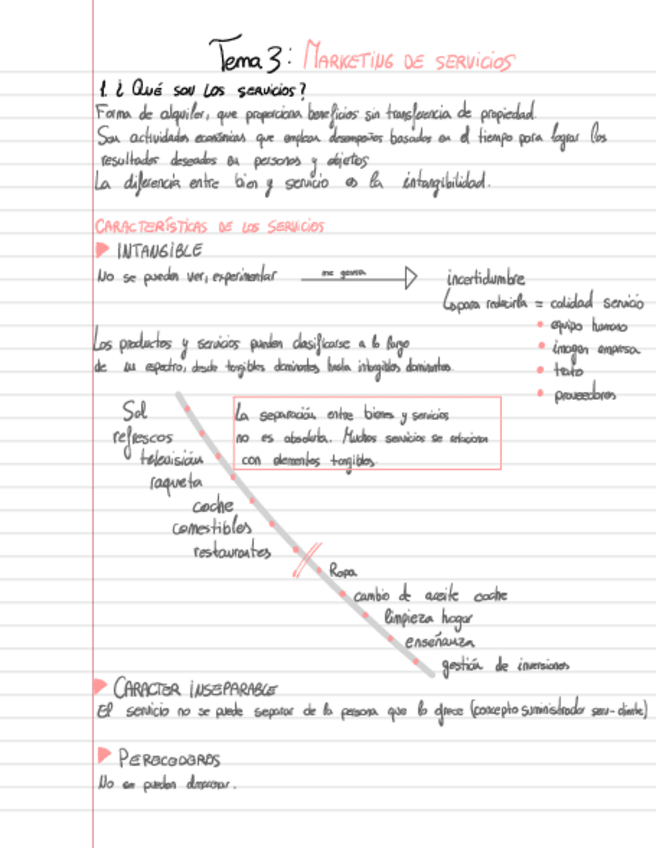 Tema 3: MARKETING DE SERVICIOS
1. ¿ Qué son los servicios?
Forma de alquiler, que proporciona beneficios sin transferencia de propiedad.
Son actividades económicas que emplean desempeños basados en el tiempo para lograr los
resultados deseados en personas y objetos
La diferencia entre bien y servicio es la intangibilidad.
CARACTERÍSTICAS DE LOS SERVICIOS
INTANGIBLE
No se pueden ver, experimentar
me genera
incertidumbre
para reducirla = calidad servicio
equipo humano
imagen empresa
trato
proveedores
Los productos y servicios pueden clasificarse a lo largo
de su espectro, desde tangibles dominantes hasta intangibles dominantes.
La separación entre bienes y servicios
no es absoluta. Muchos servicios se relacionan
con elementos tangibles.
Sal
refrescos
televisión
raqueta
coche
comestibles
restaurantes
Ropa
cambio de aceite coche
limpieza hogar
enseñanza
gestión de inversiones
CARACTER INSEPARABLE
El servicio no se puede separar de la persona que lo ofrece (concepto suministrador serv-cliente)
PERECEDEROS
No se pueden almacenar.